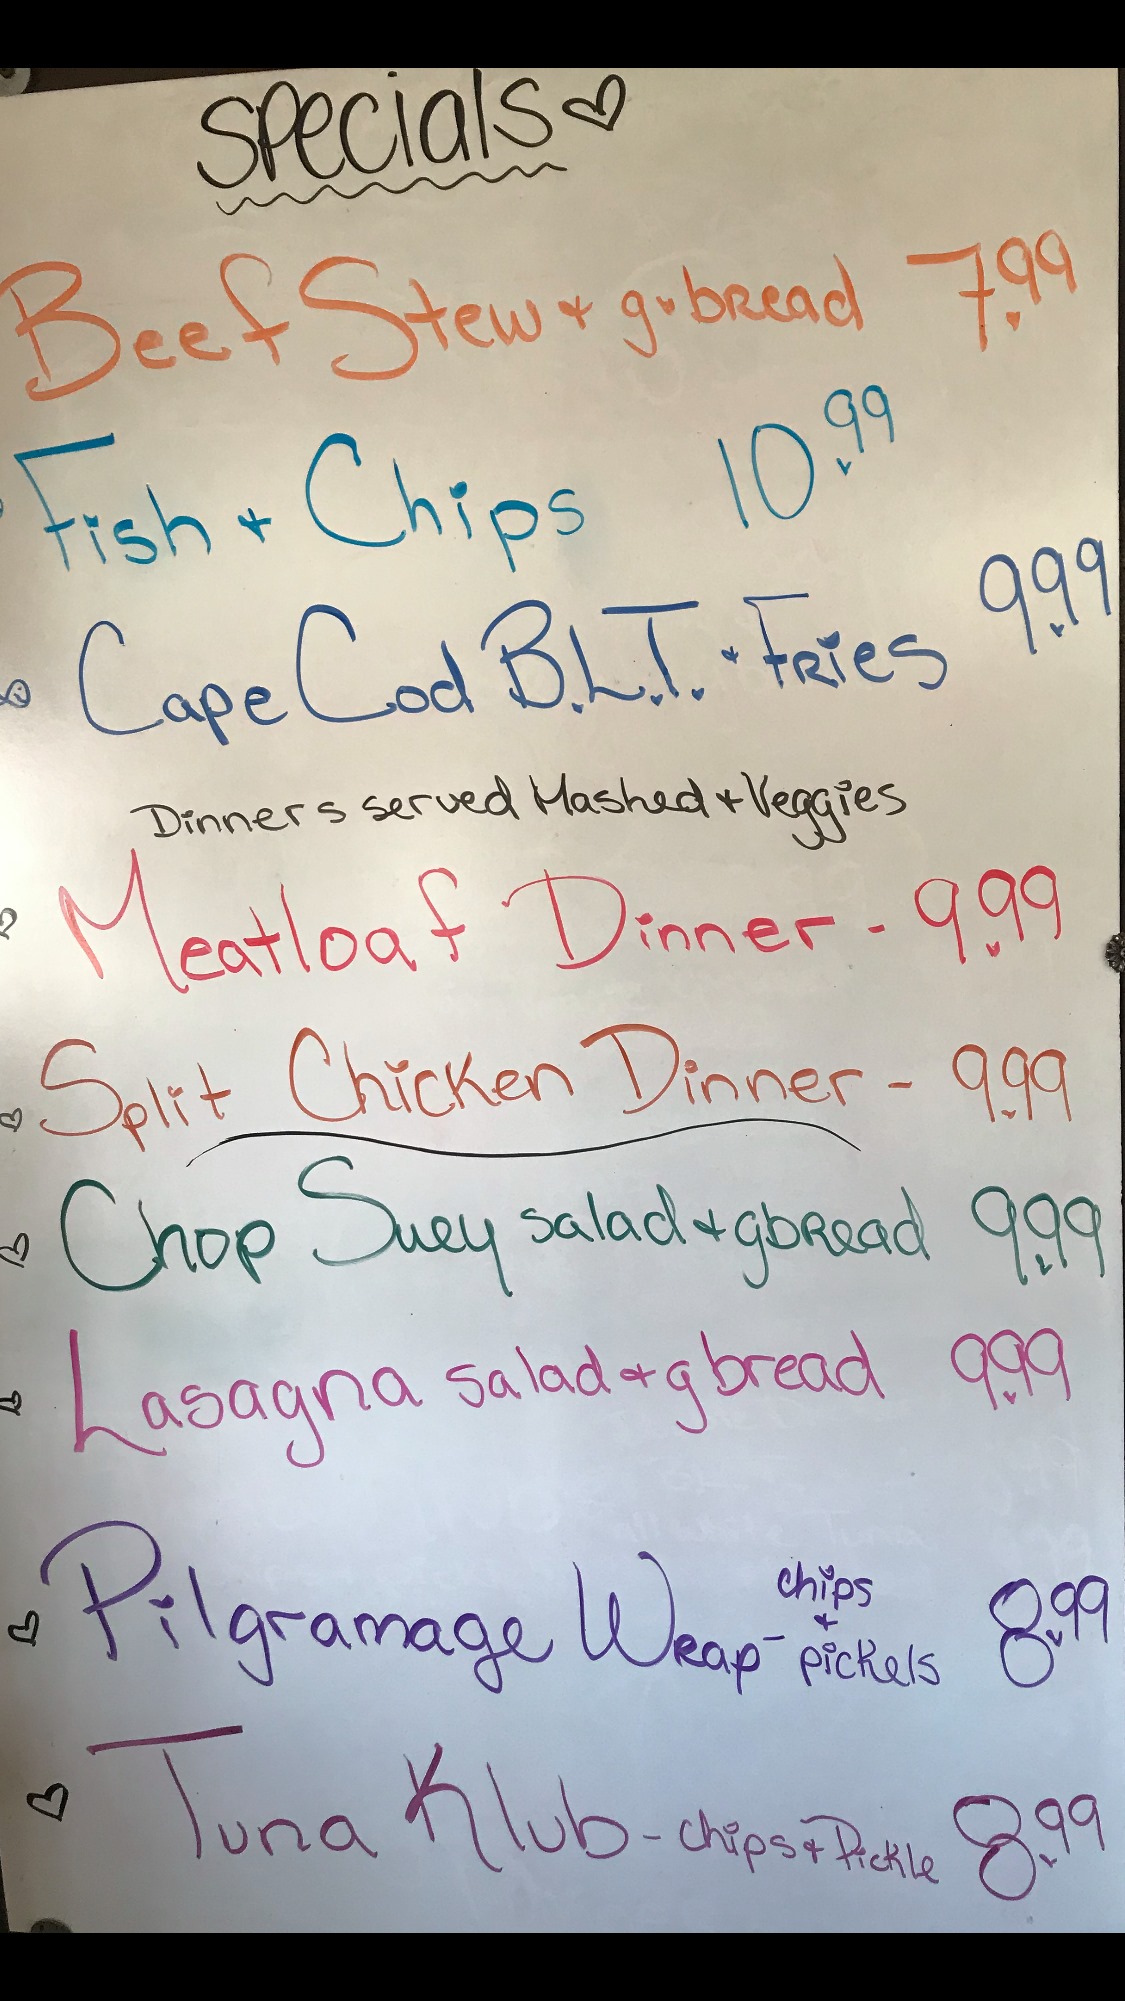 Specials
Beef Stew + g.bread 7.99
Fish + Chips 10.99
Cape Cod B.L.T. + Fries 9.99
Dinners served Mashed + Veggies
Meatloaf Dinner - 9.99
Split Chicken Dinner - 9.99
Chop Suey salad + gbread 9.99
Lasagna salad + gbread 9.99
Pilgramage Wrap - chips + pickels 8.99
Tuna Klub - chips + Pickle 8.99